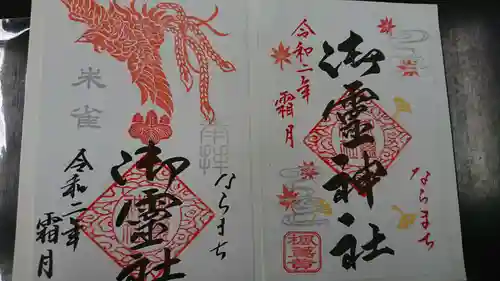 令和二年
霜月
御靈神社
ならまち
朱雀
令和二年
霜月
御靈社
ならまち